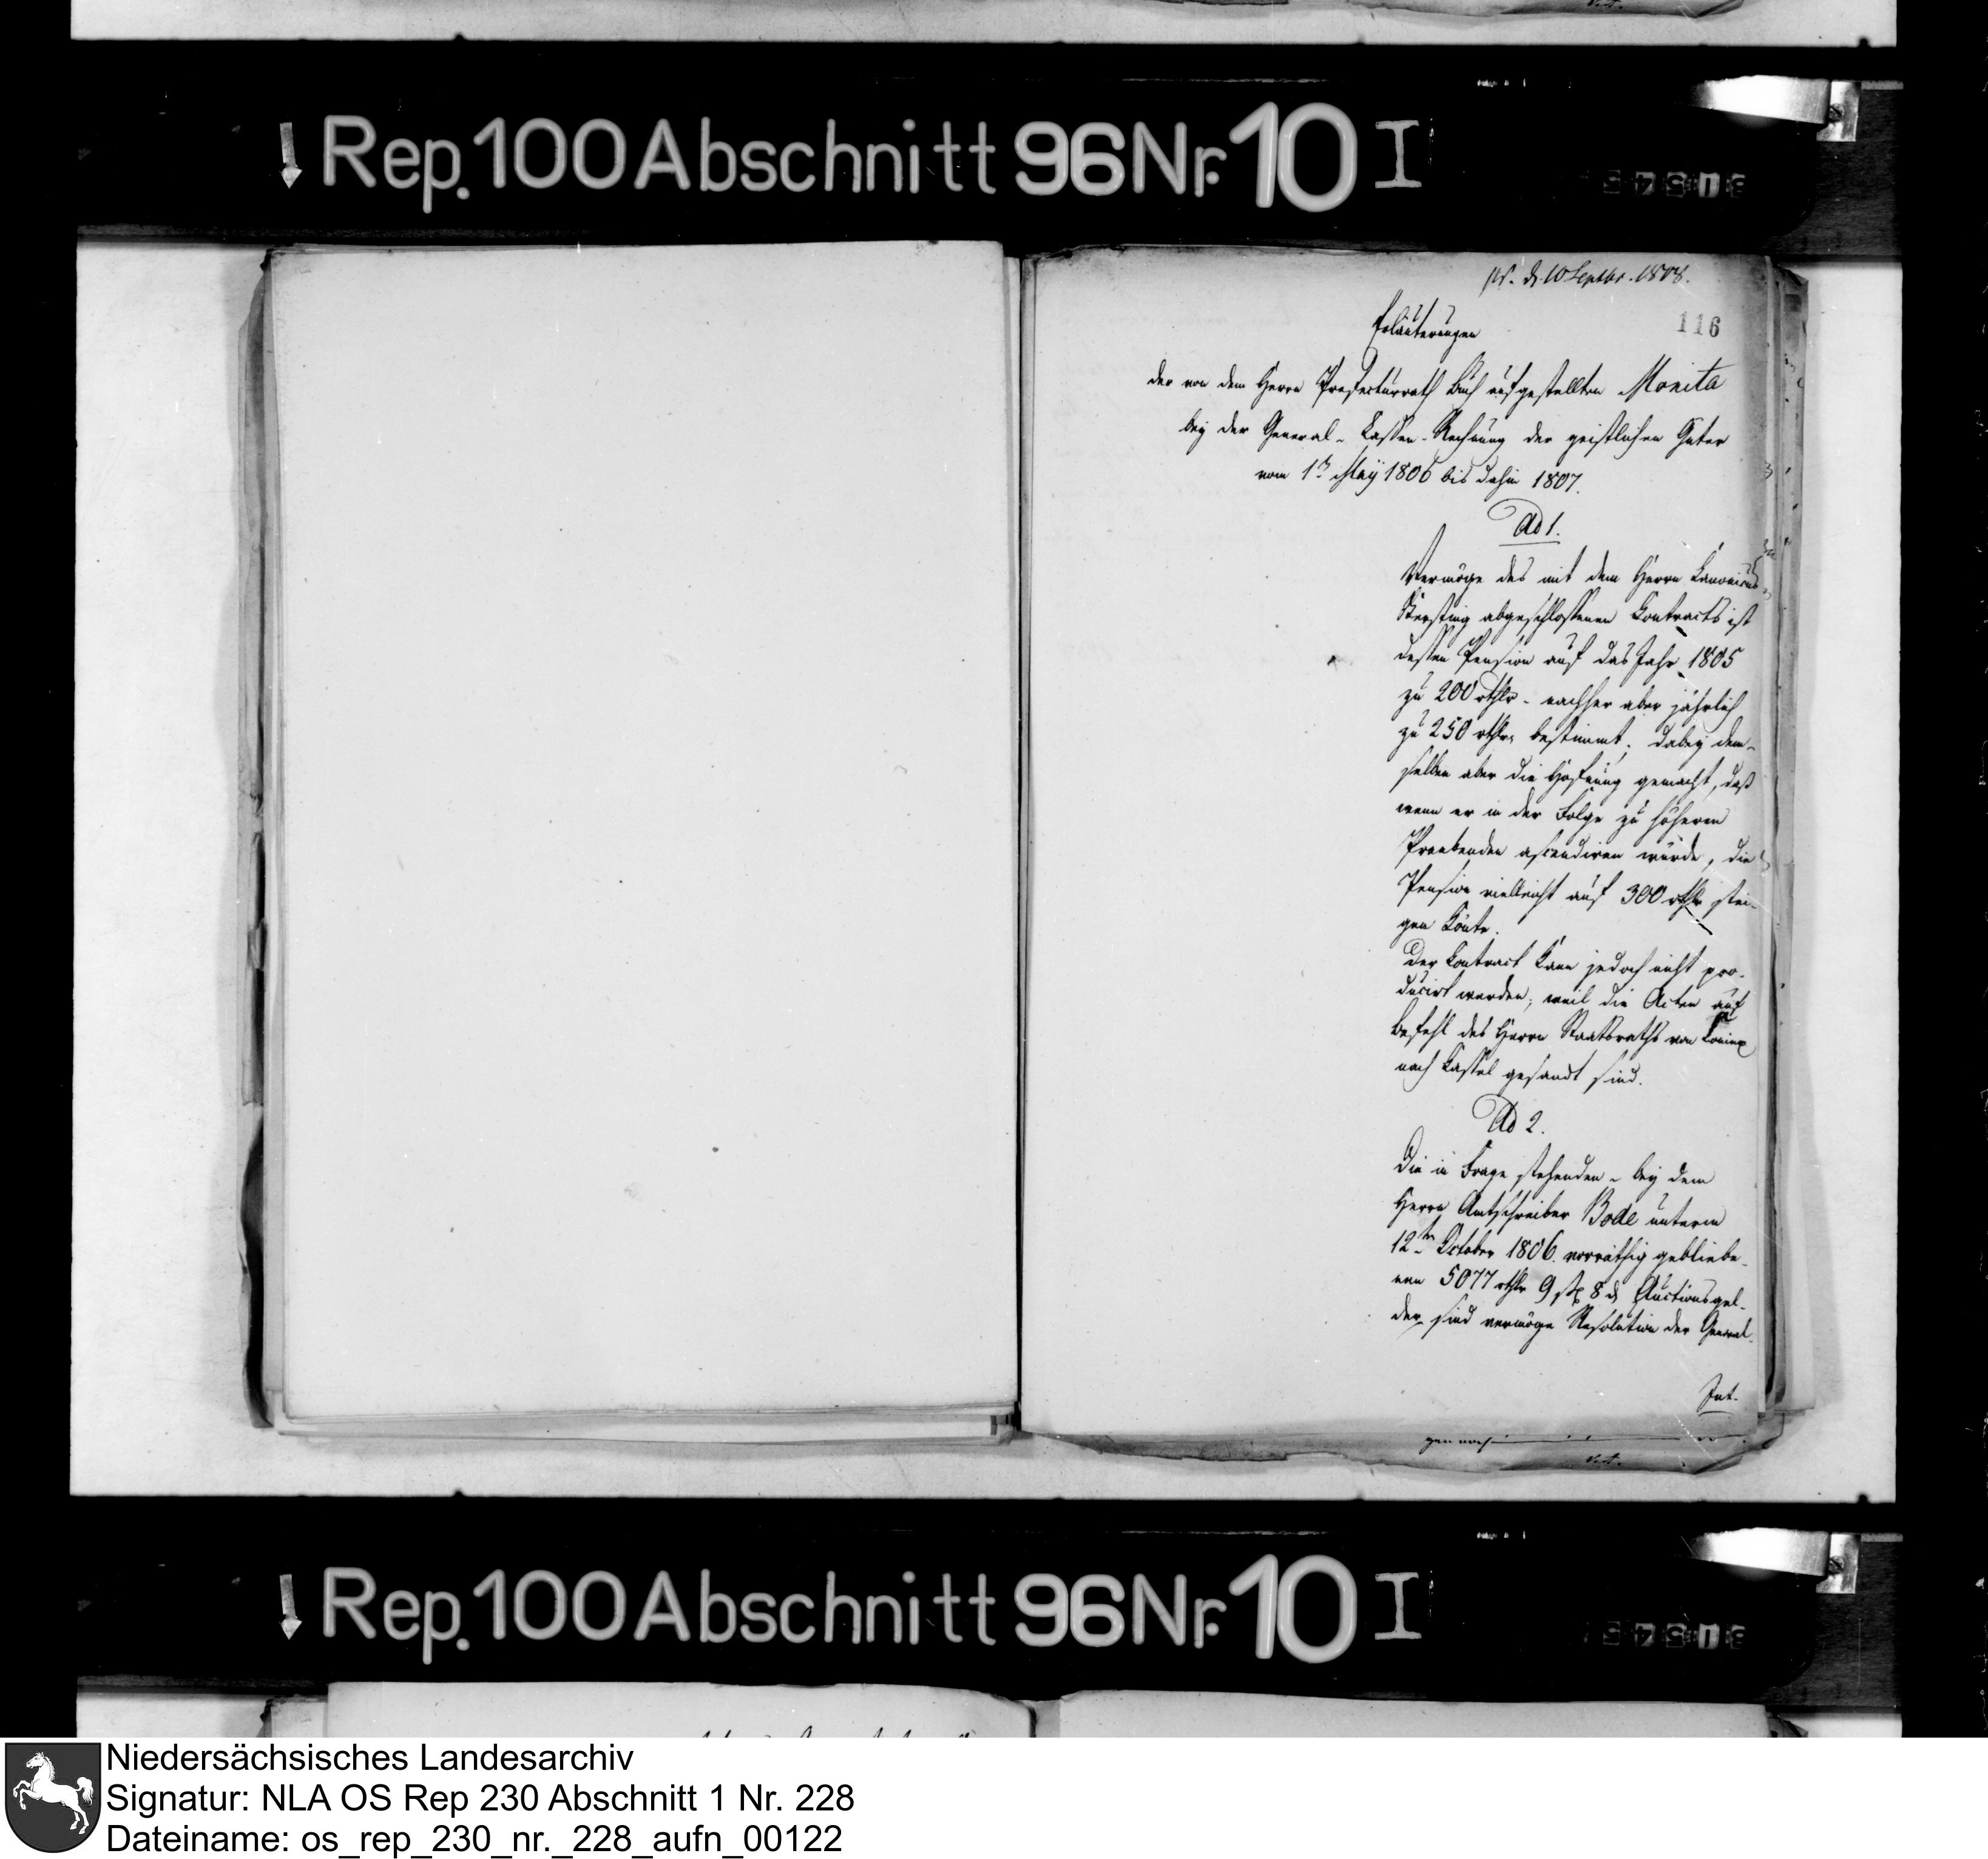 Rep. 100 Abschnitt 96 Nr. 10 I
ps. d. 10 Septbr. 1808.
116
Erläuterungen
der von dem Herrn Praefecturrath Buch aufgestellten Monita
bey der General-Cassen-Rechnung der geistlichen Güter
vom 1ten May 1806 bis dahin 1807.
Ad 1.
Vermöge des mit dem Herrn Canonicus
Kersting abgeschlossenen Contracts ist
dessen Pension auf das Jahr 1805
zu 200 rthlr - nachher aber jährlich
zu 250 rthlr bestimmt; dabey dem-
selben aber die Hofnung gemacht, daß
wenn er in der Folge zu höheren
Praebenden ascendiren würde, die
Pension vielleicht auf 300 rthlr stei-
gen könte.
Der Contract kann jedoch nicht pro-
ducirt werden, weil die Acten auf
Befehl des Herrn Staatsraths von Coninx
nach Cassel gesandt sind.
Ad 2.
Die in Frage stehenden - bey dem
Herrn Amtschreiber Bode unterm
12ten October 1806. vorräthig gebliebe-
nen 5077 rthlr 9 ß 8 d Auctionsgel-
der sind vermöge Resolution der General-
Int-
gen noch
Rep. 100 Abschnitt 96 Nr. 10 I
Niedersächsisches Landesarchiv
Signatur: NLA OS Rep 230 Abschnitt 1 Nr. 228
Dateiname: os_rep_230_nr._228_aufn_00122